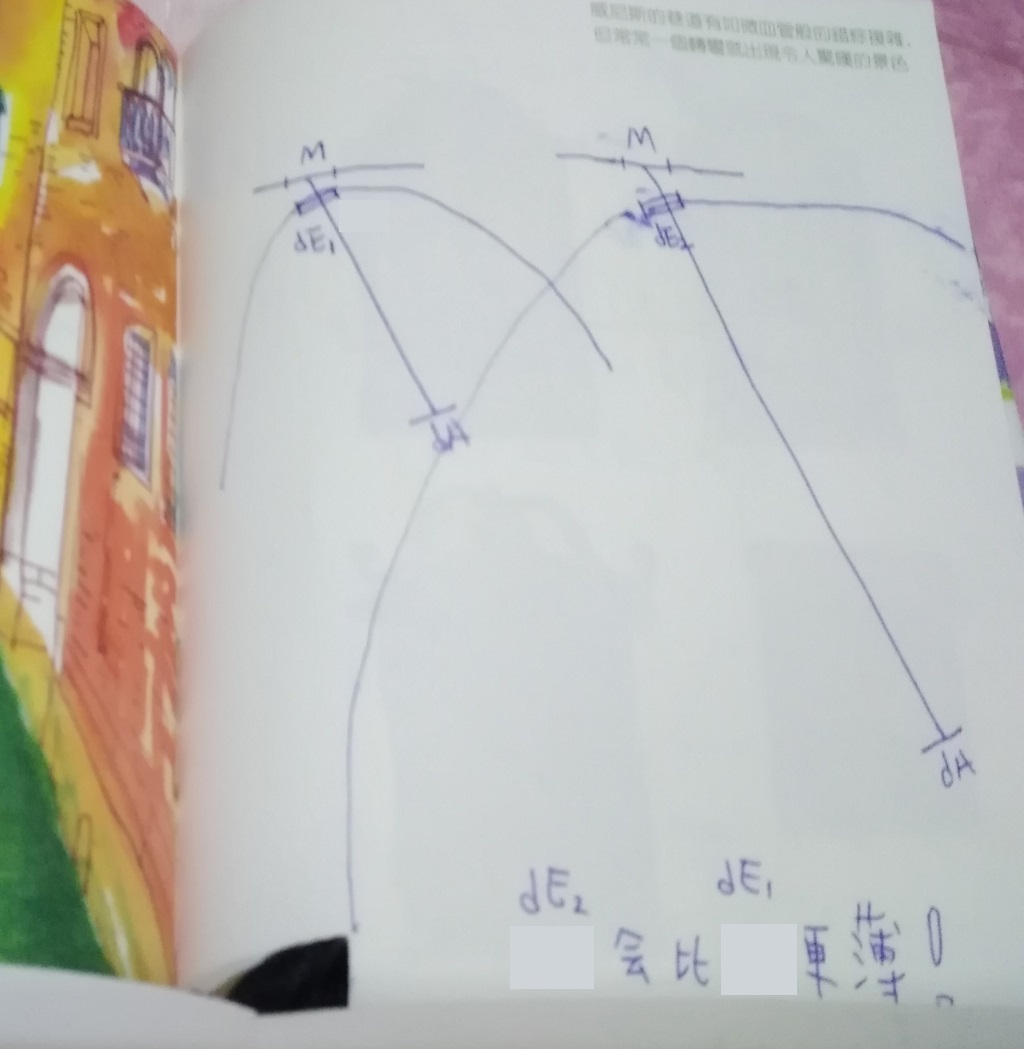 威尼斯的巷道有如微血管般的錯綜複雜，
但常常一個轉彎就出現令人驚嘆的景色
M
M
dE₁
dE₂
dA
dA
dE₂ dE₁
会比 更薄！